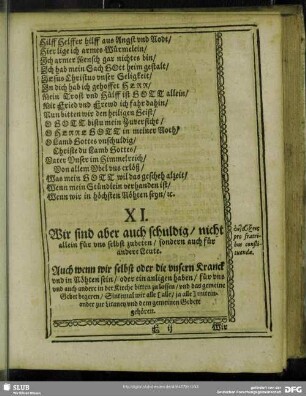 Hilff Helffer hilff aus Angst vnd Nodt/
Hier lige ich armes Würmelein/
Ich armer Mensch gar nichtes bin/
Ich hab mein Sach GOtt heim gestalt/
JEsus Christus vnser Seligkeit/
In dich hab ich gehoffet HErr/
Mein Trost vnd Hülff ist GOTT allein/
Mit Fried vnd Frewd ich fahr dahin/
Nun bitten wir den heiligen Geist/
O GOTT bistu mein Zuversicht/
O HErre GOTT in meiner Noth/
O Lamb Gottes vnschuldig/
Christe du Lamb Gottes/
Vater Vnser im Himmelreich/
Von allem Vbel vns erlöß/
Was mein GOTT wil das gescheh alzeit/
Wenn mein Stündlein verhanden ist/
Wenn wir in höchsten Nöhten seyn/ ꝛc.
XI.
Wir sind aber auch schuldig/ nicht
allein für vns selbst zubeten/ sondern auch für
andere Leute.
pro fratri-
bus consti-
tuenda.
Auch wenn wir selbst oder die vnsern Kranck
vnd in Nöhten sein/ oder ein anligen haben/ für vns
vnd auch andere in der Kirche bitten zu lassen/ vnd das gemeine
Gebet begeren/ Sintemal wir alle
zur Litaney vnd dem gemeinen Gebete
gehören.
ij
Wir
SLUB